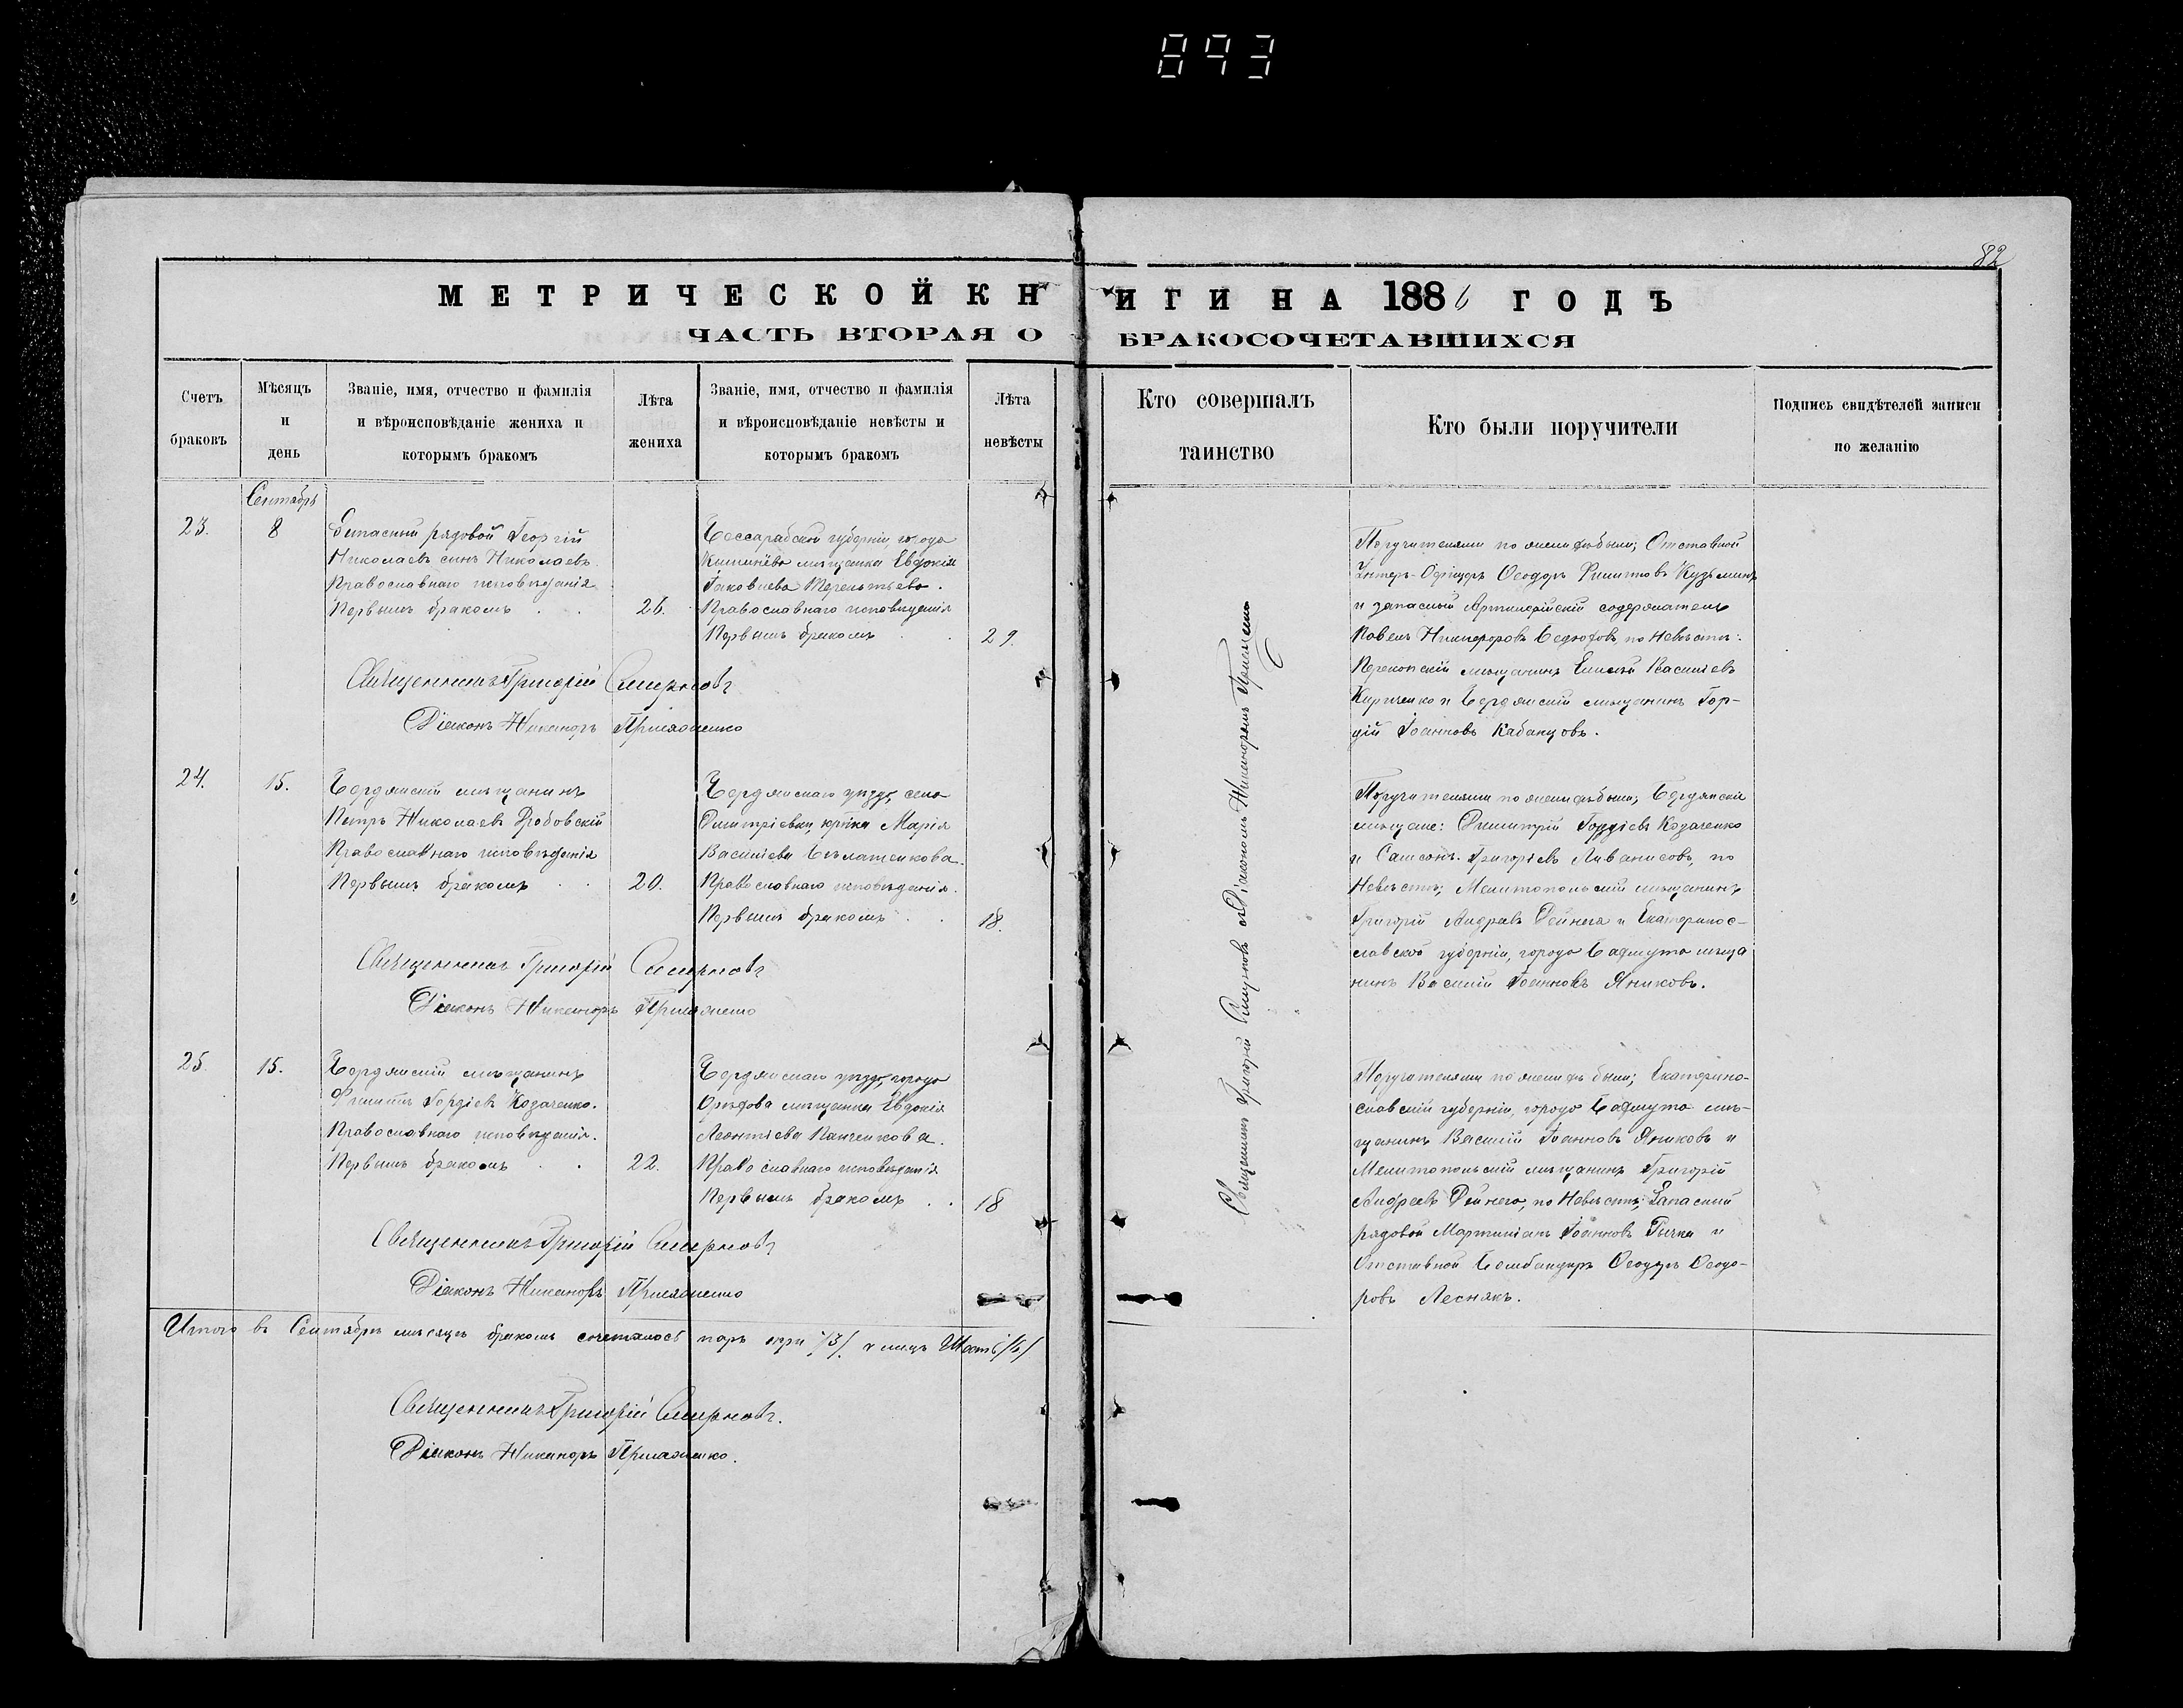 893
82
МЕТРИЧЕСКОЙ КНИГИ НА 1886 ГОДЪ
ЧАСТЬ ВТОРАЯ О БРАКОСОЧЕТАВШИХСЯ
Счетъ браковъ
Мѣсяцъ и день
Званіе, имя, отчество и фамилія
и вѣроисповѣданіе жениха и
которымъ бракомъ
Лѣта жениха
Званіе, имя, отчество и фамилія
и вѣроисповѣданіе невѣсты и
которымъ бракомъ
Лѣта невѣсты
Кто совершалъ
таинство
Кто были поручители
Подпись свидѣтелей записи
по желанію
Сентябрь
23.
8
Запасный рядовой Георгій
Николаевъ сынъ Николаевъ.
Православнаго исповѣданія
Первымъ бракомъ
26.
Бессарабской губерніи, города
Кишинёва мѣщанка Евдокія
Іаковлева Терентьева.
Православнаго исповѣданія
Первымъ бракомъ
29.
Священникъ Григорій Смирновъ
Діаконъ Никаноръ Присяженко
Поручителями по женихѣ были; Отставной
Унтеръ-Офицеръ Ѳеодоръ Филиповъ Кузьминъ
и запасный Артилерійскій содержатель
Павелъ Никифоровъ по Невѣстѣ:
Перекопскій мѣщанинъ Василіевъ
Кириченко и Бердянскій мѣщанинъ Гор-
дій Іоанновъ Кабанцовъ.
24.
15.
Бердянскій мѣщанинъ
Петръ Николаевъ Дробовскій
Православнаго исповѣданія
Первымъ бракомъ
20.
Бердянскаго уѣзда, села
Димитріевки, крѣнка Марія
Василіева Бѣлашенкова.
Православнаго исповѣданія.
Первымъ бракомъ
18.
Священникъ Григорій Смирновъ
Діаконъ Никаноръ Присяженко
Поручителями по женихѣ были; Бердянскіе
мѣщане: Димитрій Гордіевъ Козаченко
и Самсонъ Григоріевъ Ливанисовъ, по
Невѣстѣ; Мелитопольскій мѣщанинъ
Григорій Андреевъ Дейнега и Екатеринос-
лавской губерніи, города Бахмута мѣща
нинъ Василій Іоанновъ Яниковъ.
25.
15.
Бердянскій мѣщанинъ
Филиппъ Гордіевъ Козаченко.
Православнаго исповѣданія.
Первымъ бракомъ
22.
Бердянскаго уѣзда, города
Орѣхова мѣщанка Евдокія
Леонтіева Панченкова.
Православнаго исповѣданія
Первымъ бракомъ
18
Священникъ Григорій Смирновъ
Діаконъ Никаноръ Присяженко
Поручителями по женихѣ были; Екатерино-
славской губерніи, города Бахмута мѣ-
щанинъ Василій Іоанновъ Яниковъ и
Мелитопольскій мѣщанинъ Григорій
Андреевъ Дейнега, по Невѣстѣ; Запасный
рядовой Мартиніанъ Іоанновъ Гычка и
Отставной Бомбандиръ Ѳеодоръ Ѳеодо-
ровъ Леснякъ.
Священникъ Григорій Смирновъ съ Діакономъ Никаноромъ Присяженко
Итого въ Сентябрѣ мѣсяцѣ бракомъ сочеталось паръ три /3/. и лицъ Шесть /6/
Священникъ Григорій Смирновъ.
Діаконъ Никаноръ Присяженко.